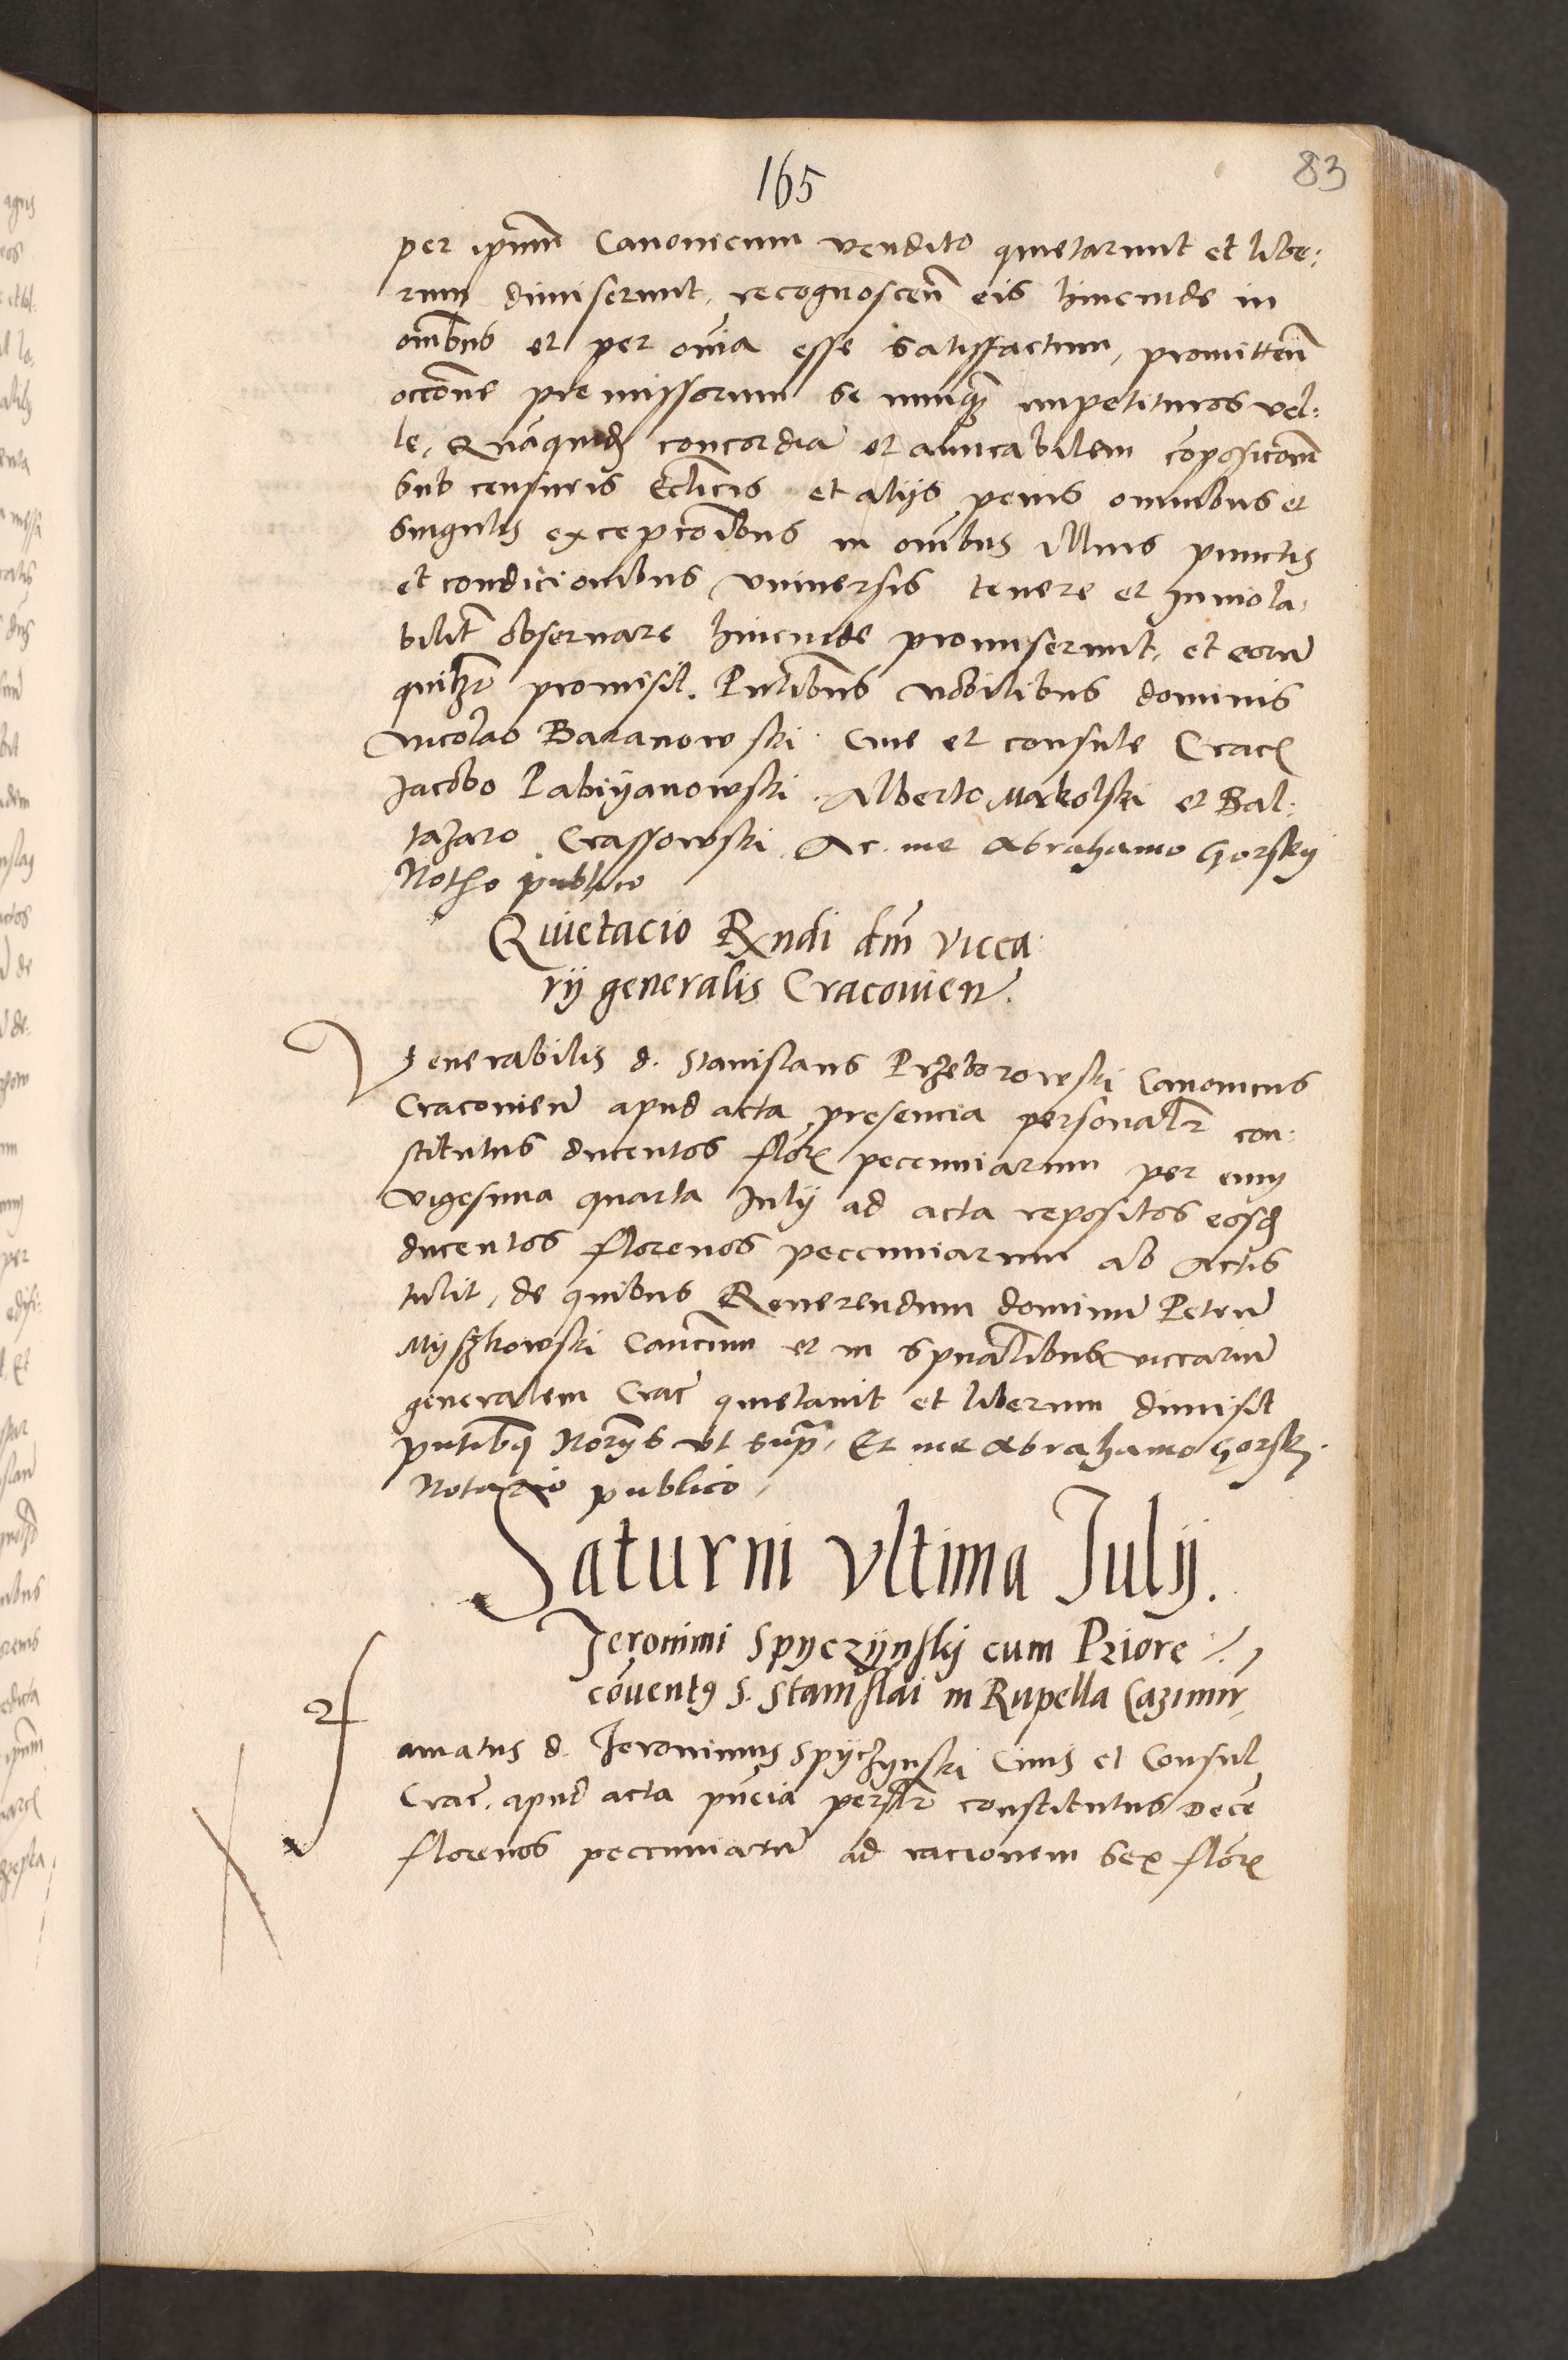 165
83
per ipm̄ Canonicum vendito quietarunt et libe:
rum dimiserunt, recognoscen̄ eis hincinde in
om̄ibus et per om̄ia esse satisfactum, promitten̄
occōne premissorum se nunq̄ impetituros vel:
le, Quāquid concordiā et amicabilem cōposicōnē
sub censuris Ecclīcis et alijs penis omnibus et
singulis excepcōibus in om̄ibus illius punctis
et condicionibus vniuersis tenere et Inuiola:
bilit̄ obseruare hincinde promiserunt, et eorū
quilibet promisit. Pn̄tibus nobilibus dominis
Nicolao Baranowski Ciue et consule Crac
Jacobo Pabiyanowski Alberto Makolski et Bal:
tazaro Crassowski Ac me Abrahamo Gorsky
Notho publico
Quietacio Rndi dm̄ vicca
rij generalis Cracouien̄.
Venerabilis d. Stanislaus Przeborowski Canonicus
Cracouien̄ apud acta presencia personalr̄ con:
stitutus ducentos flor pecuniarum per eum
vigesima quarta Julij ad acta repositos eosd
ducentos florenos peccuniarum ab Actis
tulit, de quibus Reuerendum dominū Petrū
Myszkowski Cancm̄ et in spūalibus viccariū
generalem Crac̄ quietauit et liberum dimisit
pn̄tibq Nor̄ys vt supra, Et me Abrahamo Gorsky
Notario publico,
Saturni vltima Julij.
Jeronimi Spyczynskij cum Priore
cōuentq S. Stanislai in Rupella Cazimir,
amatus d. Jeronimus Spyczynski Ciuis et Consul
Crac̄. apud acta pn̄cia persolr̄ constitutus Decē
florenos peccuniarū ad racionem sex flor